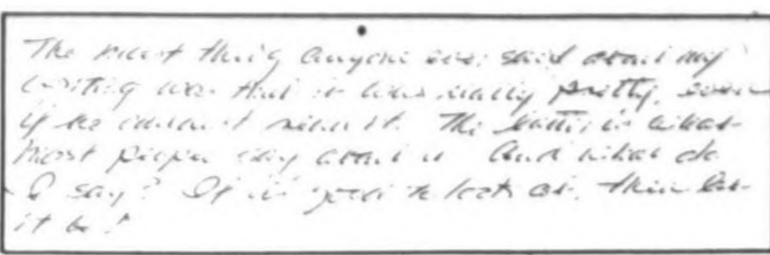 The nicest thing anyone ever said about my
writing was that it was really pretty, even
if he couldn't read it. The latter is what
most people say about it. And what do
I say? If it is good to look at, then let
it be!